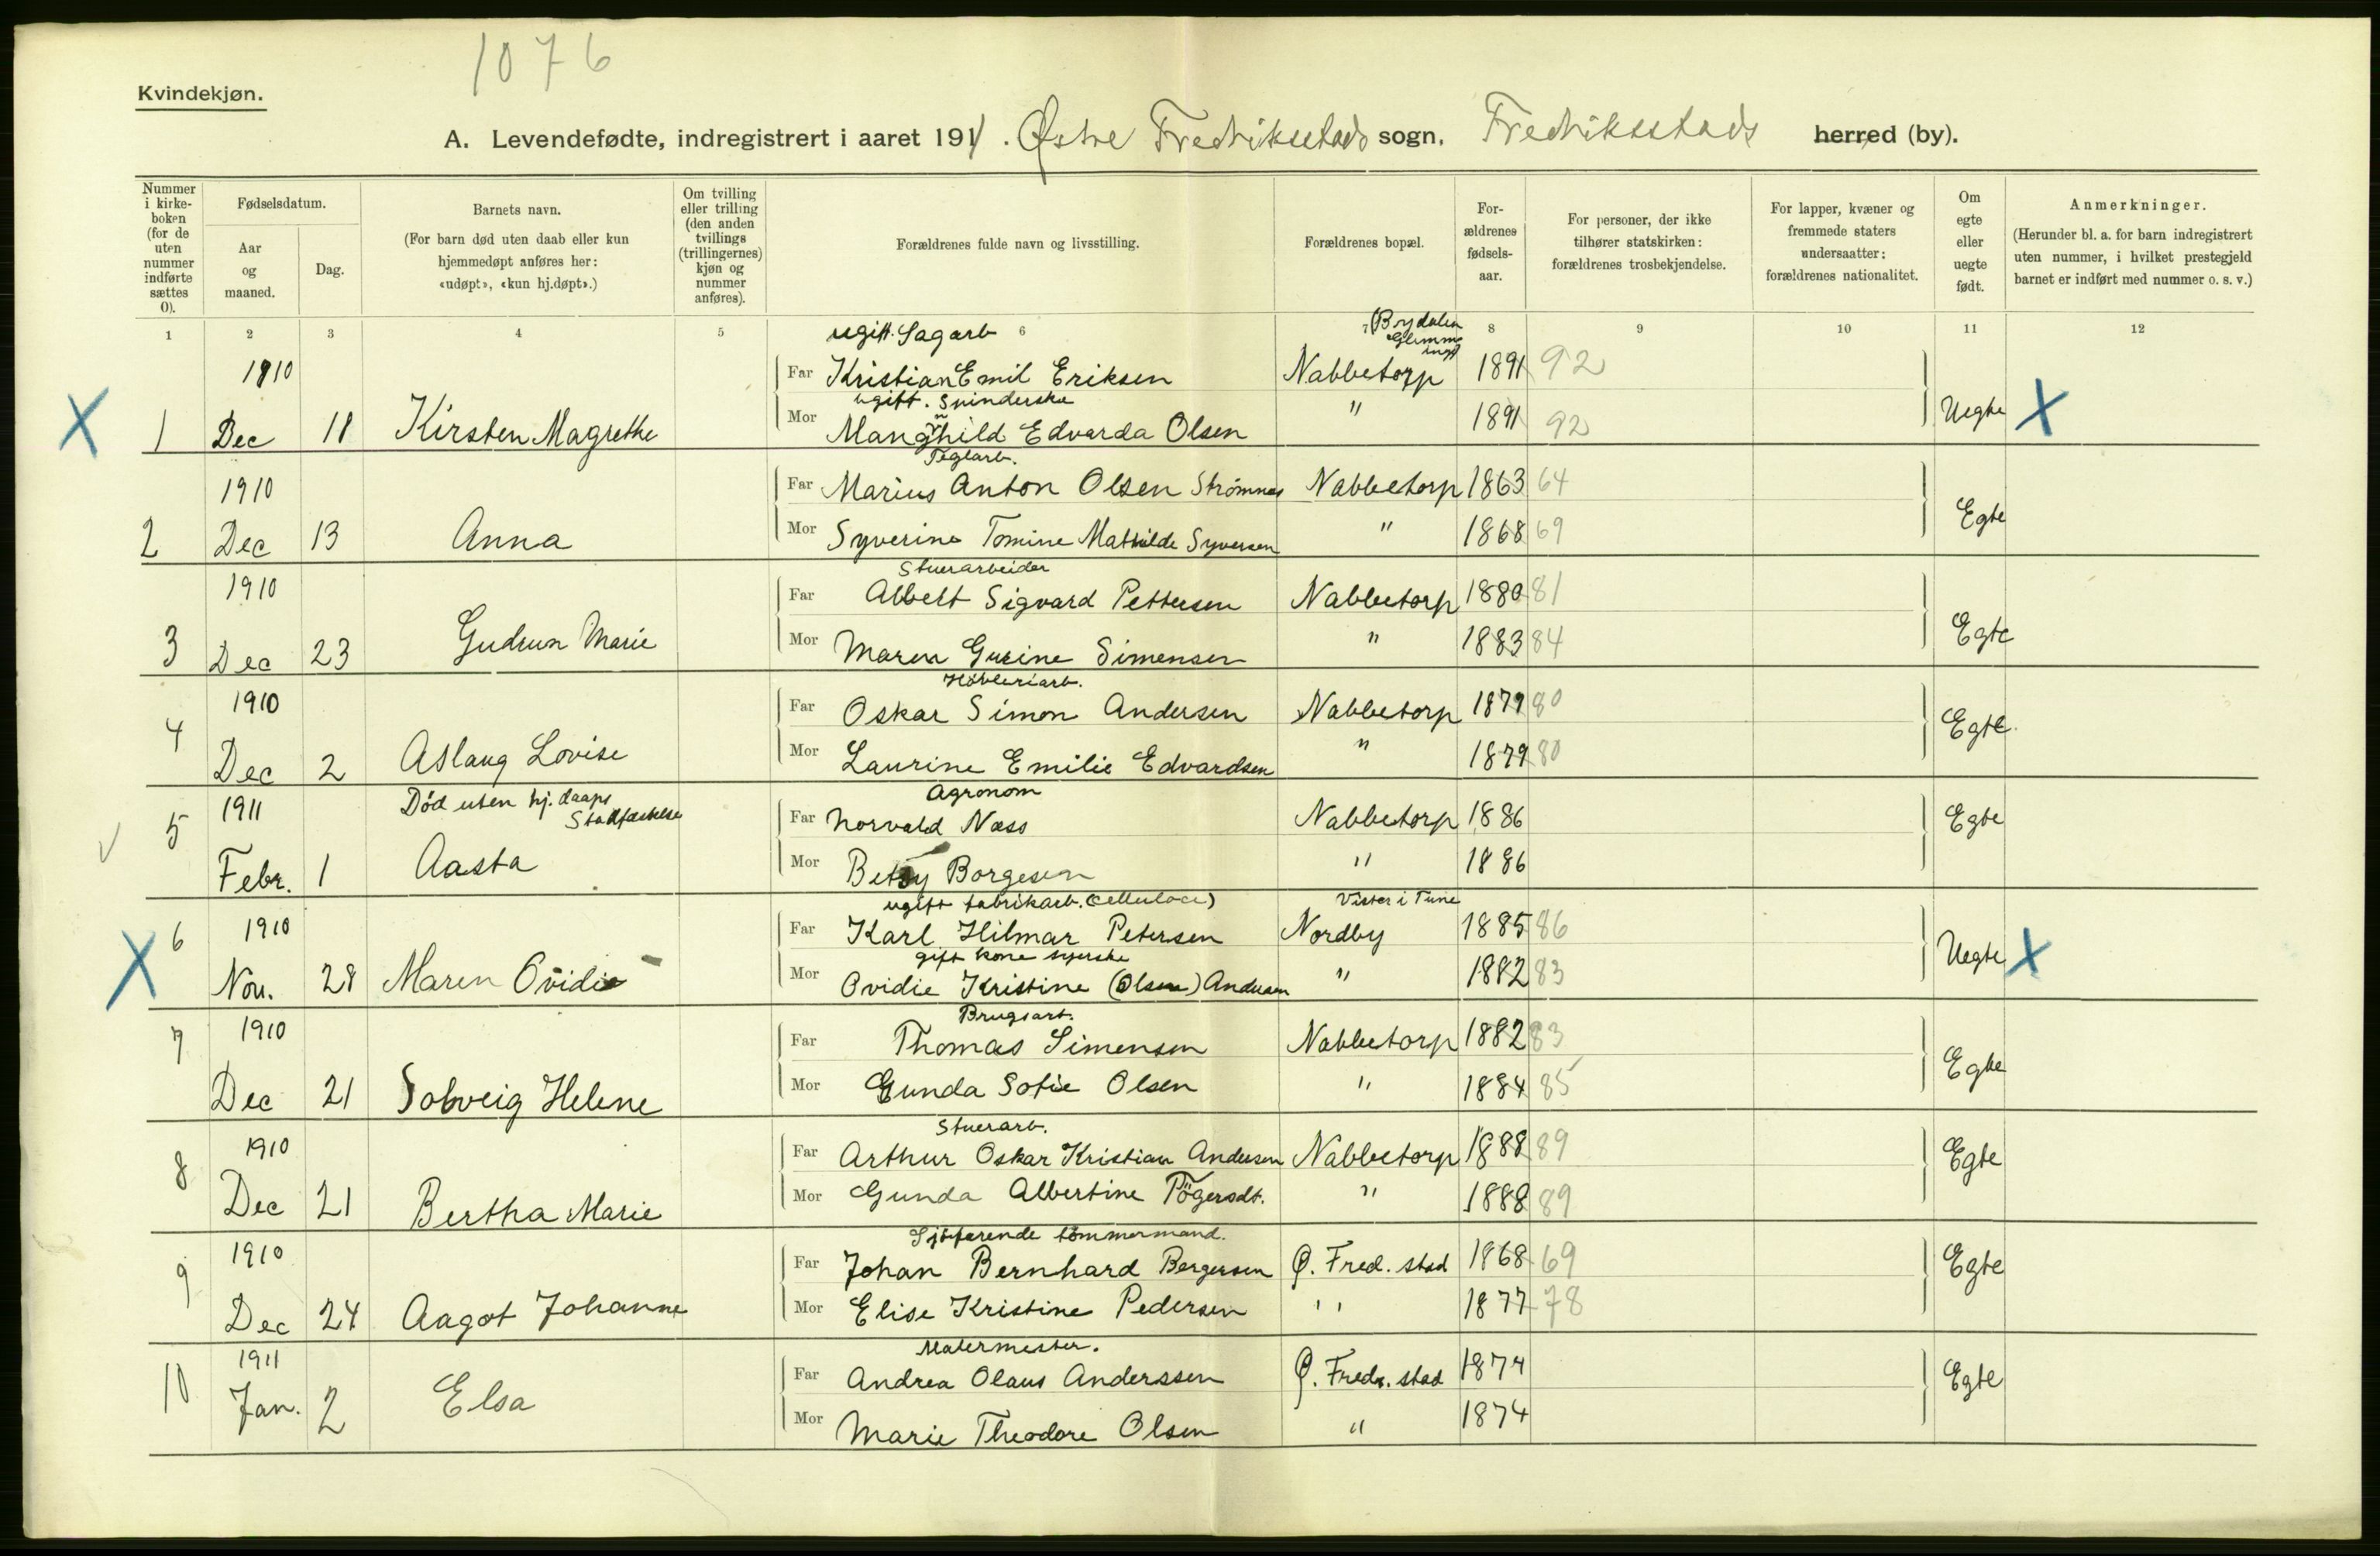 1076
Kvindekjøn.
A. Levendefødte, indregistrert i aaret 1911. Østre Fredriksstads sogn. Fredriksstads herred (by).
Nummer i kirke-boken (for de uten nummer indførte sættes 0).
Fødselsdatum.
Aar og maaned.
Dag.
Barnets navn.
(For barn død uten daab eller kun hjemmedøpt anføres her: «udøpt», «kun hj.døpt».)
Om tvilling eller trilling (den anden tvillings (trillingernes) kjøn og nummer anføres).
Forældrenes fulde navn og livsstilling.
Forældrenes bopæl.
For-ældrenes fødsels-aar.
For personer, der ikke tilhører statskirken: forældrenes trosbekjendelse.
For lapper, kvæner og fremmede staters undersaatter: forældrenes nationalitet.
Om egte eller uegte født.
Anmerkninger.
(Herunder bl. a. for barn indregistrert uten nummer, i hvilket prestegjeld barnet er indført med nummer o. s. v.)
1 2 3 4 5 6 7 8 9 10 11 12
ugift. Sagarb (Brydalen Glemminge)
1910 Far Kristian Emil Eriksen Nabbetorp 1891 92
ugift. Spinderske
X 1 Dec 11 Kirsten Magrethe Mor Mangnhild Edvarda Olsen " 1891 92 Uegte X
Teglarb.
1910 Far Marius Anton Olsen Strømnes Nabbetorp 1863 64
2 Dec 13 Anna Mor Syverine Tomine Mathilde Syversen " 1868 69 Egte
Stuerarbeider
1910 Far Albert Sigvard Pettersen Nabbetorp 1880 81
3 Dec 23 Gudrun Marie Mor Maren Gurine Simensen " 1883 84 Egte
Høvleriarb.
1910 Far Oskar Simon Andersen Nabbetorp 1879 80
4 Dec 2 Aslaug Lovise Mor Laurine Emilie Edvardsen " 1879 80 Egte.
Død uten hj. daaps Stadfæstelse Agronom
5 1911 Far Norvald Næss Nabbetorp 1886 Egte
Febr. 1 Aasta Mor Betsy Borgesen " 1886
ugift fabrikarb. (Cellulose) Vister i Tune
6 1910 Far Karl Hilmar Petersen Nordby 1885 86
gift kone syerske
X Nov. 28 Maren Ovidie Mor Ovidie Kristine (Olsen) Andersen " 1882 83 Uegte X
Brugsarb.
7 1910 Far Thomas Simensen Nabbetorp 1882 83
Dec 21 Solveig Helene Mor Gunda Sofie Olsen " 1884 85 Egte
Stuerarb.
8 1910 Far Arthur Oskar Kristian Andersen Nabbetorp 1888 89
Dec 21 Bertha Marie Mor Gunda Albertine " 1888 89 Egte
Sjøfarende tømmermand.
9 1910 Far Johan Bernhard Bergersen Ø. Fred. stad 1868 69
Dec 24 Aagot Johanne Mor Elise Kristine Pedersen " 1877 78 Egte
Malermester.
10 1911 Far Andrea Olaus Anderssen Ø. Fredr. stad 1874
Jan. 2 Elsa Mor Marie Theodore Olsen " 1874 Egte